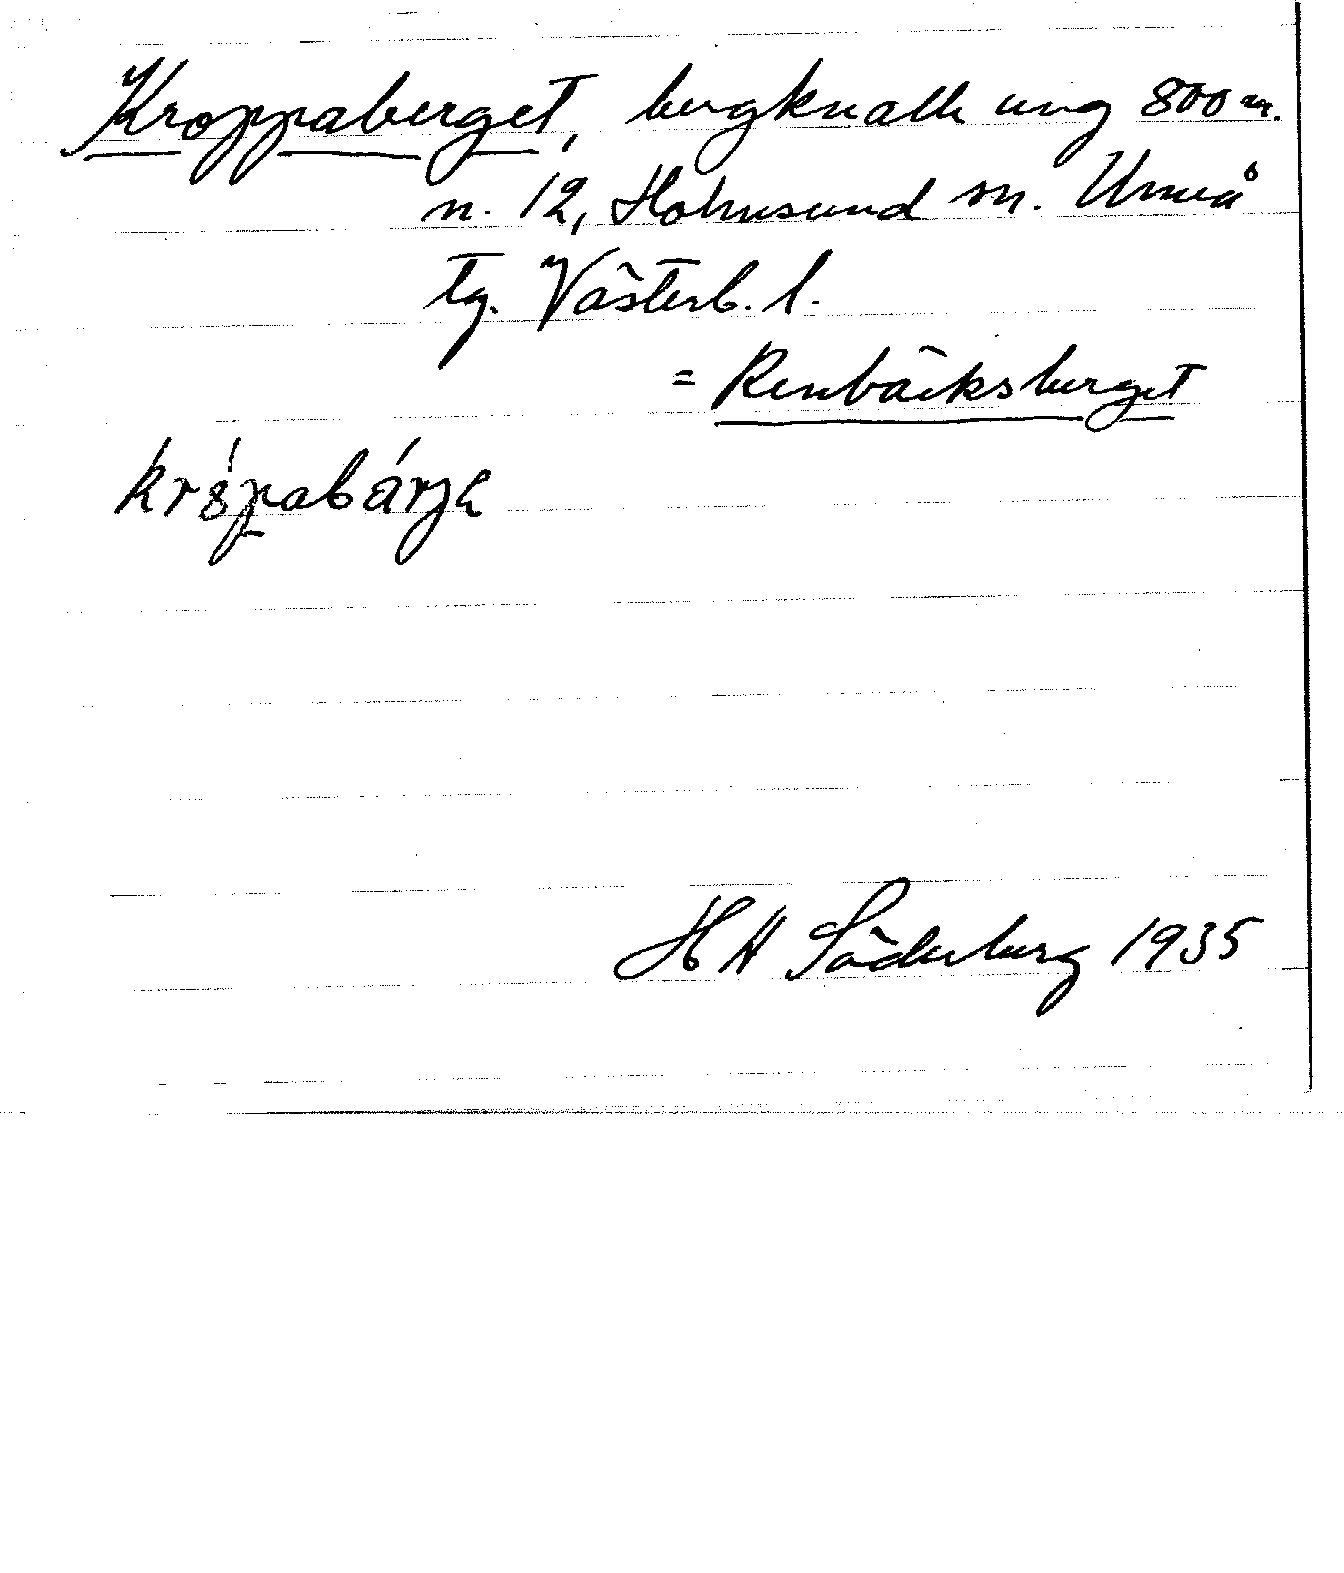 Kroppaberget, bergknalle ung 800 m.
n. 12, Holmsund sn. Umeå
tg. Västerb. l.
= Renbäcksberget
krópabárjɛ
HH Söderberg 1935